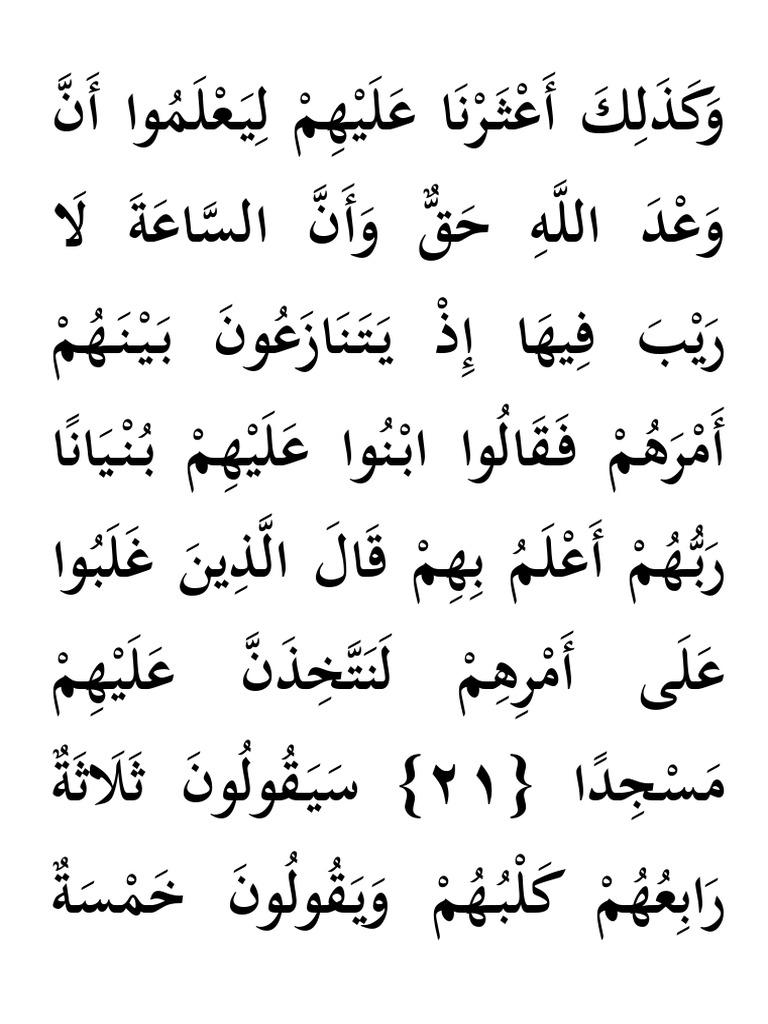 وَكَذَلِكَ أَعْثَرْنَا عَلَيْهِمْ لِيَعْلَمُوا أَنَّ
وَعْدَ اللَّهِ حَقٌّ وَأَنَّ السَّاعَةَ لَا
رَيْبَ فِيهَا إِذْ يَتَنَازَعُونَ بَيْنَهُمْ
أَمْرَهُمْ فَقَالُوا ابْنُوا عَلَيْهِمْ بُنْيَانًا
رَبُّهُمْ أَعْلَمُ بِهِمْ قَالَ الَّذِينَ غَلَبُوا
عَلَى أَمْرِهِمْ لَنَتَّخِذَنَّ عَلَيْهِمْ
مَسْجِدًا {٢١} سَيَقُولُونَ ثَلَاثَةٌ
رَابِعُهُمْ كَلْبُهُمْ وَيَقُولُونَ خَمْسَةٌ